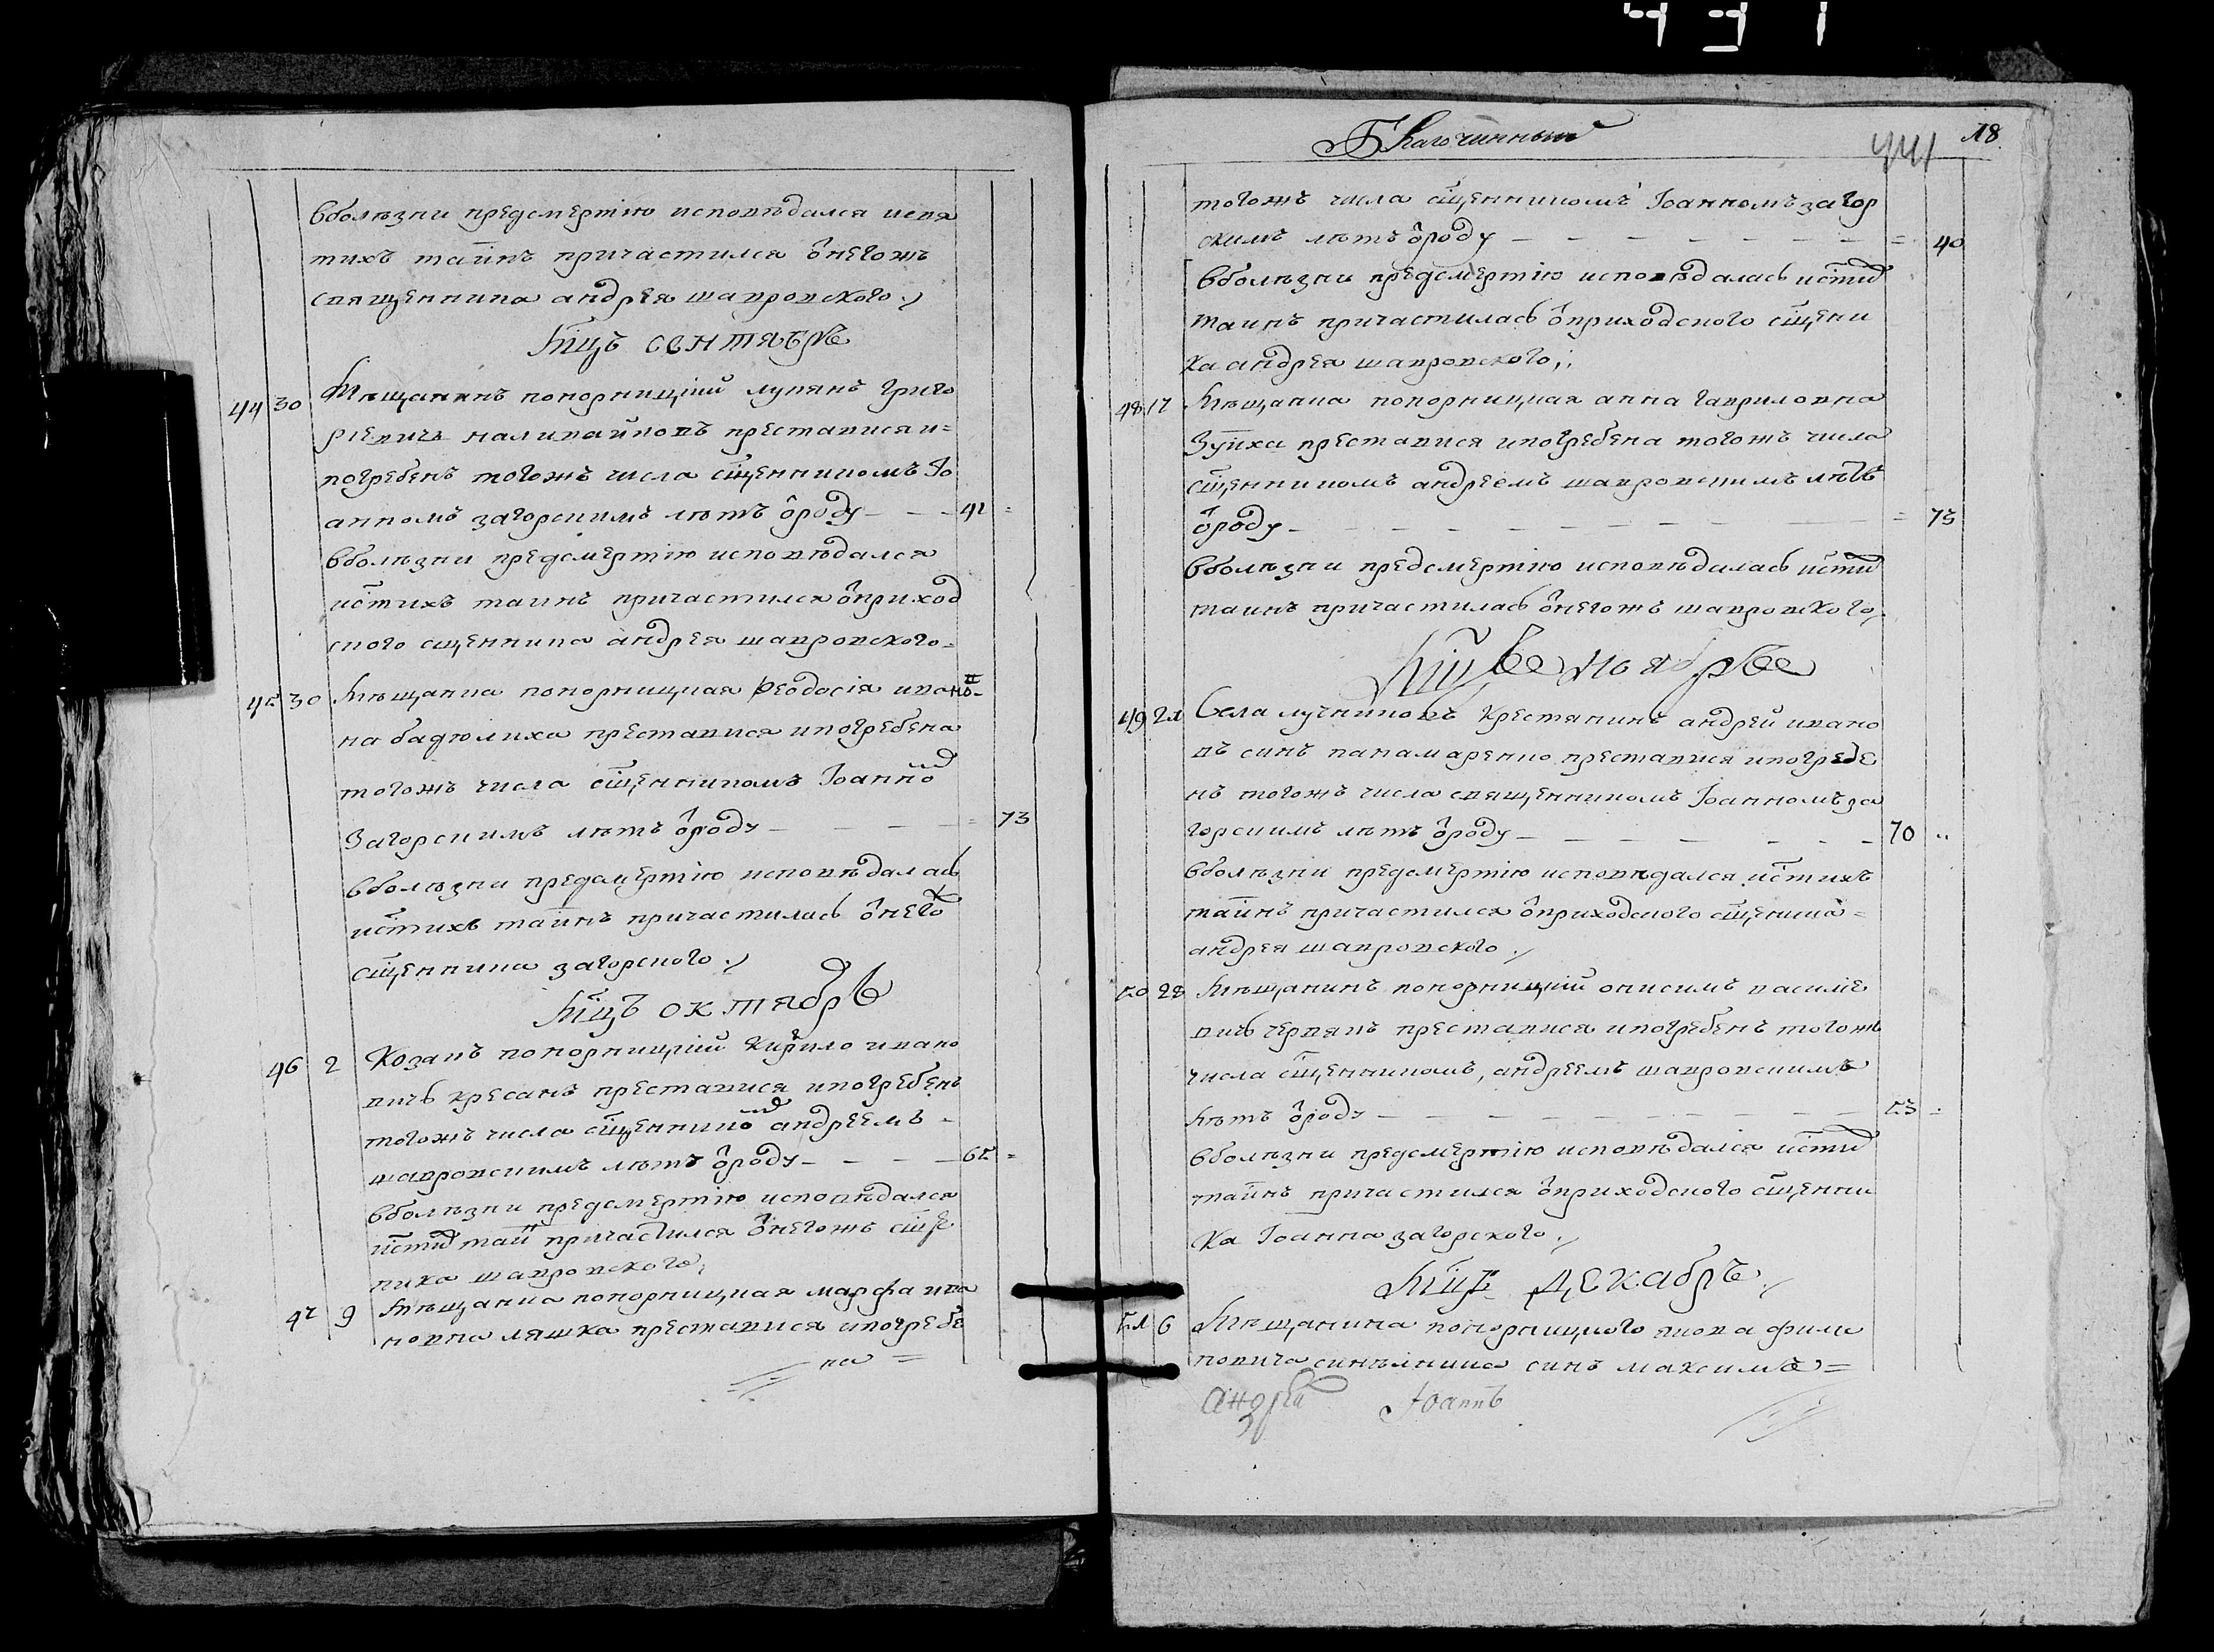 вболѣзни предсмертію исповѣдался исвя
тихъ таинъ причастился ѿнегожъ
священника андрея шавровского
Мцъ сентябръ
44 30 Мѣщанинъ понорницкій лукянъ григо
риевичъ наливайковъ преставися и=
погребенъ тогожъ числа сщенникомъ Іо
анномъ загорскимъ лѣтъ ѿроду – – – 42 =
вболѣзни предсмертію исповѣдался
истихъ таинъ причастился ѿприход
ского сщенника андрея шавровского=
45 30 Мѣщанка понорницкая Феодосія ивано
на бацюлиха преставися ипогребена
тогожъ числа сщенникомъ Іоанно
Загорскимъ лѣтъ ѿроду – – – = 73
вболѣзни предсмертію исповѣдалас
истихъ таинъ причастилась ѿнего
сщенника загорского
Мцъ октябрь
46 2 Козакъ понорницкій Кирило ивано
вичъ кресанъ преставися ипогребенъ
тогожъ числа сщенико андреемъ –
шавровскимъ лѣтъ ѿроду – – – 65 =
вболѣзни предсмертію исповѣдался
исти таи причастился ѿнегожъ сще
ника шавровского
47 9 Мѣщанка понорницкая марфа ива
новна ляшка преставися ипогребе
на =
Благочинный
441 18
тогожъ числа сщенникомъ Іоанномъ загор
скимъ лѣтъ ѿроду – – – – – – – = 40
вболѣзни предсмертію исповѣдалась исти
таинъ причастилась ѿприходского сщени
ка андрея шавровского;
48 17 Мѣщанка понорницкая анна гавриловна
Зуиха преставися ипогребена тогожъ числа
сщенникомъ андреемъ шавровскимъ лѣтъ
ѿроду – – – – – – – – – = 73
вболѣзни предсмертію исповѣдалась исти
таинъ причастилась ѿнегожъ шавровского
Мцъ ноябръ
49 21 Села лучниковъ крестянинъ андрей ивано
въ синъ панамаренко преставися ипогребе
нъ тогожъ числа священникомъ Іоанномъ за
горскимъ лѣтъ ѿроду – – – – – – – 70 "
вболѣзни предсмертію исповѣдался истихъ
таинъ причастился ѿприходского сщеника =
андрея шавровского
50 28 Мѣщанинъ понорницкій онисимъ василе
вичъ червякъ преставися ипогребенъ тогожъ
числа сщенникомъ, андреемъ шавровскимъ
лѣтъ ѿроду – – – – – – – – – 53
вболѣзни предсмертію исповѣдался исти
таинъ причастился ѿприходского сщенни
ка Іоанна загорского
Мцъ декабръ
51 6 Мѣщанина понорницкого якова фили
повича синъ максимъ =
Андрей Іоаннъ
491